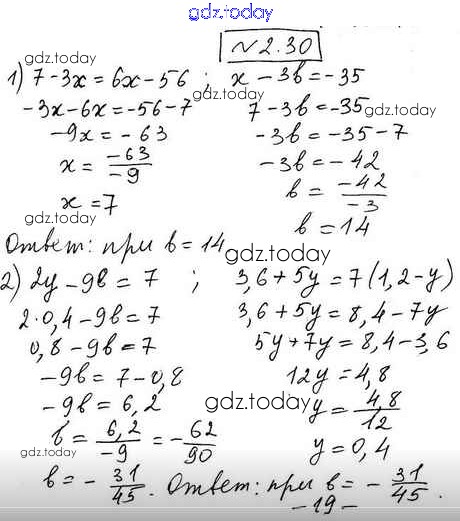 gdz.today
№2.30
gdz.today
gdz.today
1) 7-3x=6x-56 ; x-3b=-35
-3x-6x=-56-7 7-3b=-35
gdz.today
-9x=-63 -3b=-35-7
x=\frac{-63}{-9} -3b=-42
gdz.today
b=\frac{-42}{-3}
x=7
gdz.today
b=14
Ответ: при b=14
gdz.today
2) 2y-9b=7 ; 3,6+5y=7(1,2-y)
gdz.today
2·0,4-9b=7 3,6+5y=8,4-7y
0,8-9b=7 5y+7y=8,4-3,6
gdz.today
-9b=7-0,8 12y=4,8
-9b=6,2 y=\frac{4,8}{12}
gdz.today
b=\frac{6,2}{-9}=-\frac{62}{90} y=0,4
gdz.today
b=-\frac{31}{45}. Ответ: при b=-\frac{31}{45}.
-19-